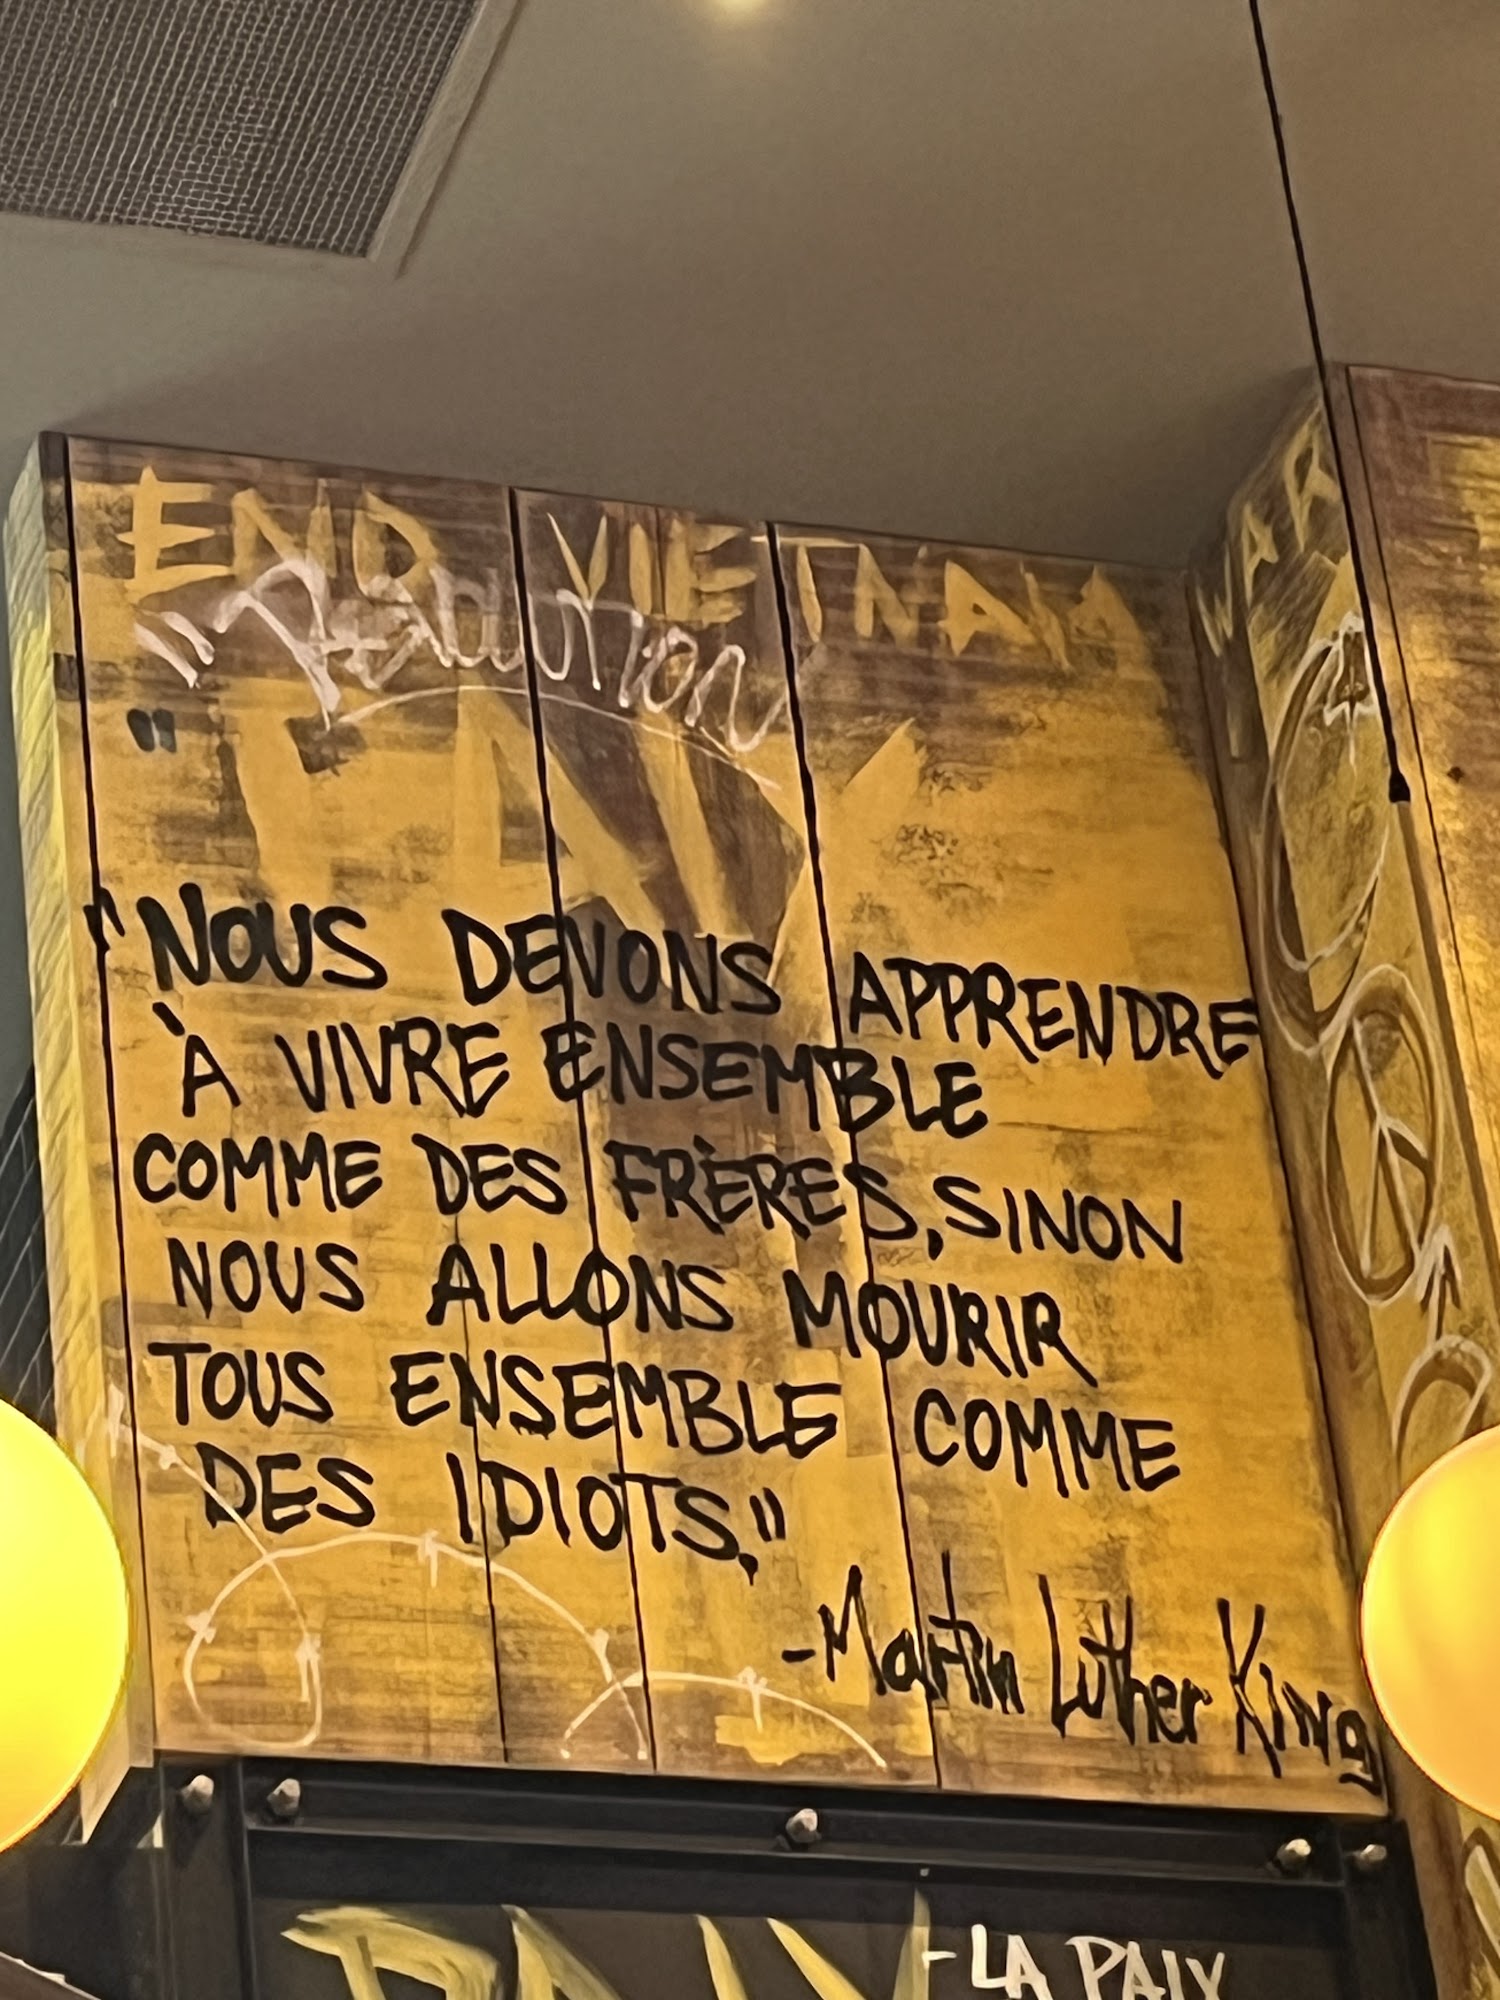 END VIETNAM
"Révolution
"NOUS DEVONS APPRENDRE
À VIVRE ENSEMBLE
COMME DES FRÈRES, SINON
NOUS ALLONS MOURIR
TOUS ENSEMBLE COMME
DES IDIOTS."
-Martin Luther King
WAR
-LA PAIX